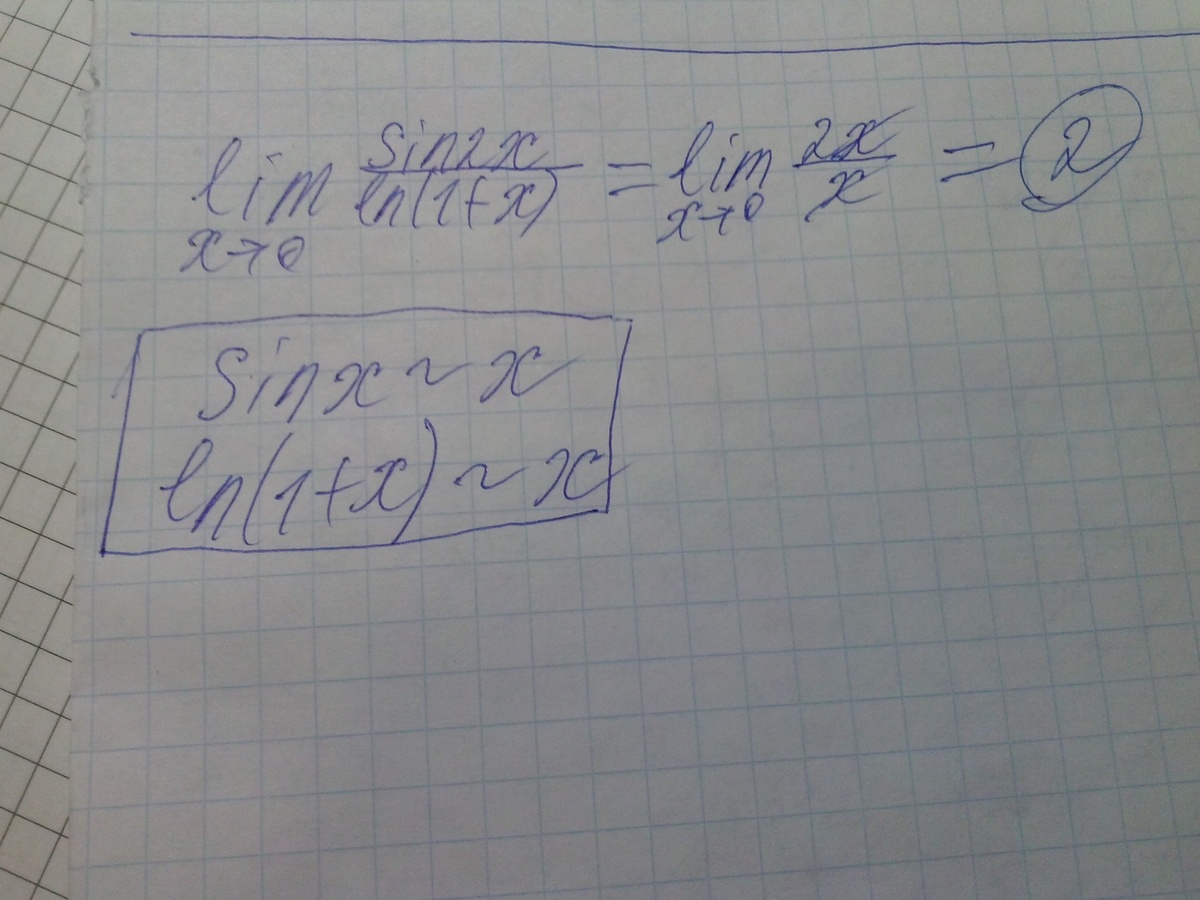 lim sin2x / ln(1+x) = lim 2x / x = 2
x→0 x→0
sinx ~ x
ln(1+x) ~ x